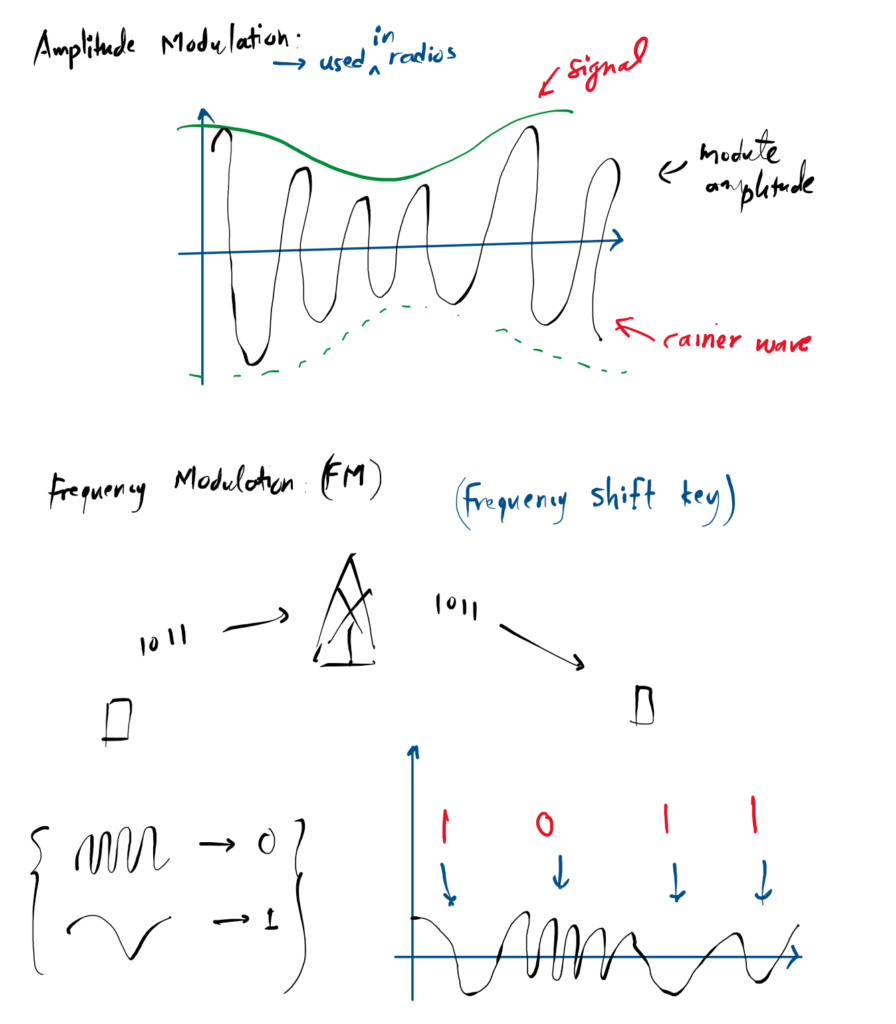 Amplitude Modulation:
→ used ^ in radios
signal
← modute
amplitude
carrier wave
Frequency Modulation: (FM)
(Frequency shift key)
1011 → 1011
→ 0
→ 1
1 0 1 1